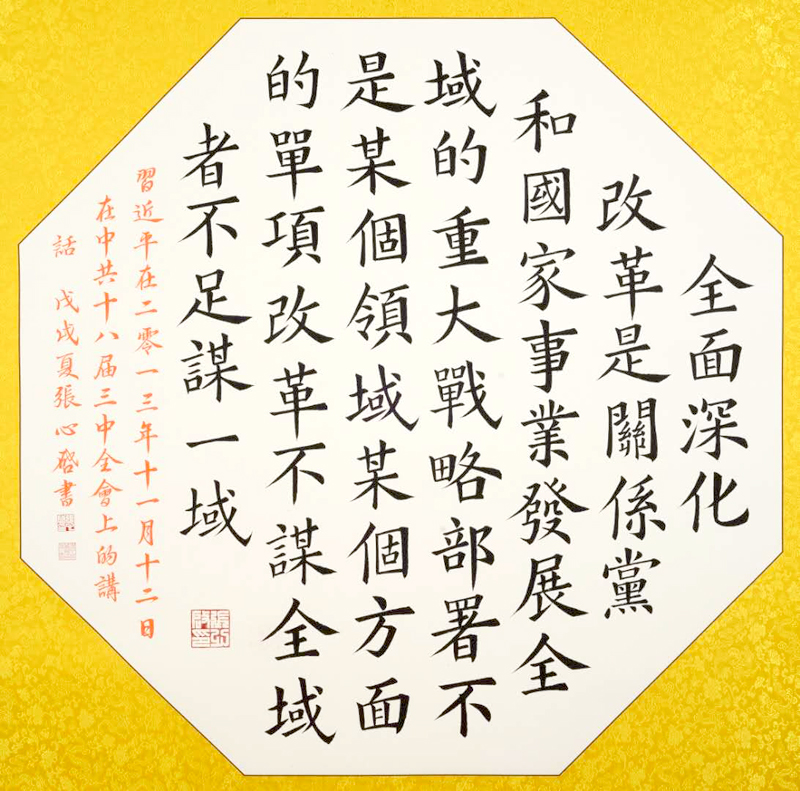 全面深化
改革是關係黨
和國家事業發展全
域的重大戰略部署不
是某個領域某個方面
的單項改革不謀全域
者不足謀一域
習近平在二零一三年十一月十二日
在中共十八届三中全會上的講
話 戊戌夏張心啓書